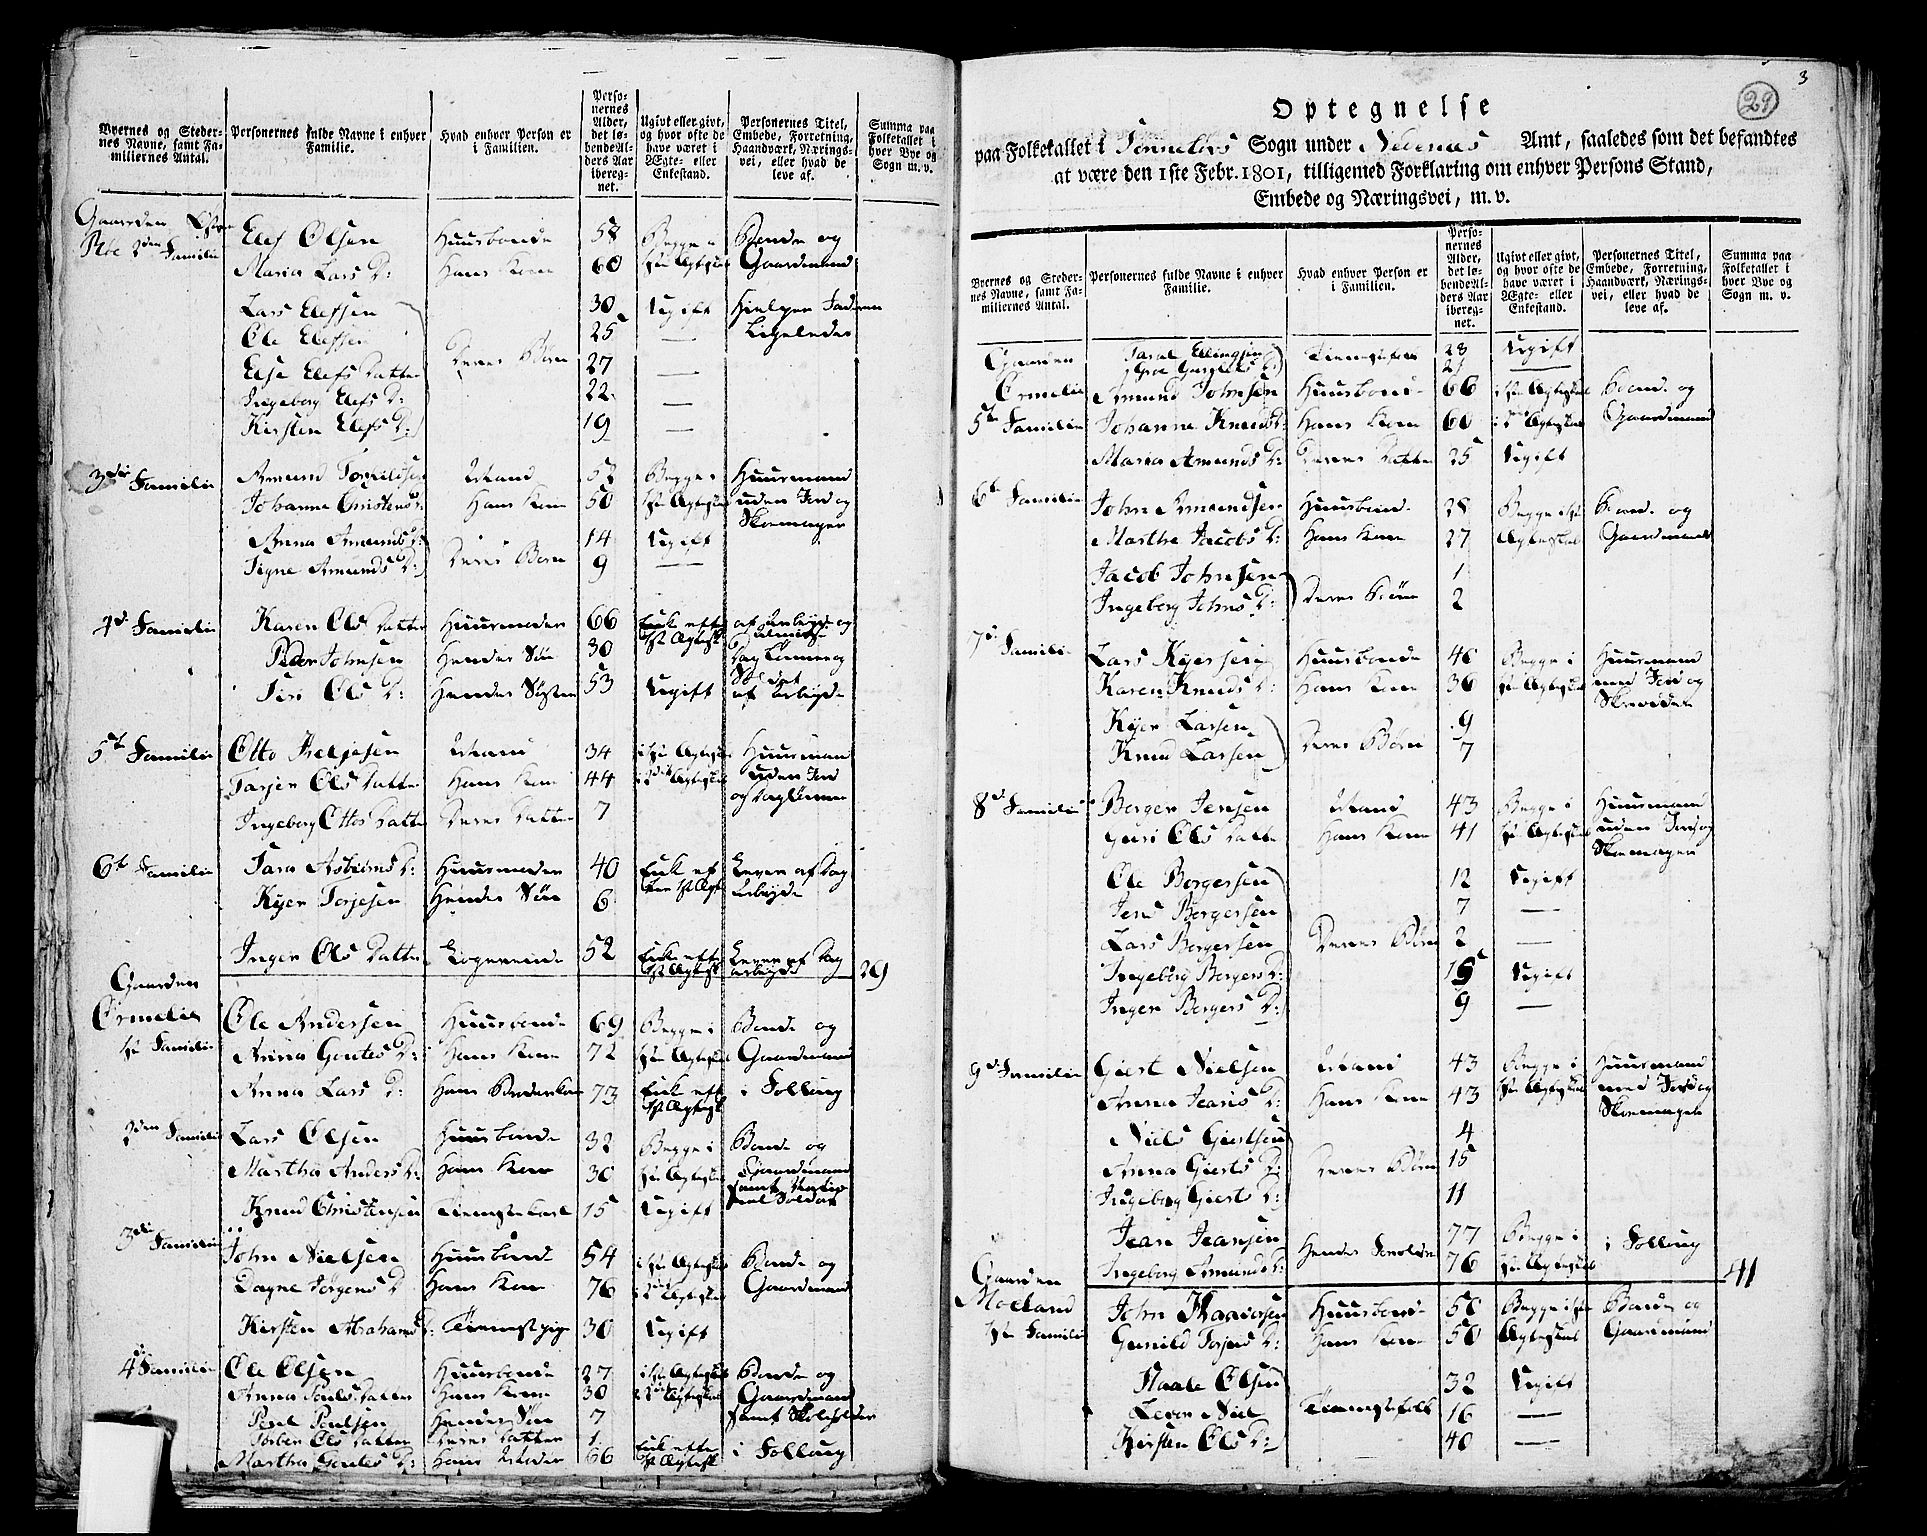 Byernes og Steder-
nes Navne, samt Fa-
miliernes Antal.
Personernes fulde Navne i enhver
Familie.
Hvad enhver Person er
i Familien.
Perso-
nernes
Alder,
det lø-
bende Al-
ders Aar
iberegnet.
Ugivt eller givt,
og hvor ofte de
have været i
Ægte- eller
Enkestand.
Personernes Titel,
Embede, Forretning,
Haandværk, Nærings-
vei, eller hvad de
leve af.
Summa paa
Folketallet i
hver Bye og
Sogn m. v.
Gaarden
2den Familie Elef Olsen Huusbonde 58 Begge i Bonde og
Maria Lars D: Hans Kone 60 1ste Ægteskab Gaardmand
Lars Elefsen 30 Ugift Hielper Faderen
Ole Elefsen 25 — Ligeledes
Else Elefs Datter Deres Børn 27 —
Ingeborg Elefs D: 22 —
Kirsten Elefs D: 19 —
3die Familie Amund Torkildsen Mand 52 Begge i Huusmand
Johanne Christens D: Hans Kone 50 1ste Ægteskab uden Jord og
Skomager
Anna Amunds D: 14 Ugift
Signe Amunds D: Deres Børn 9 —
4de Familie Karen Ols Datter Huusmoder 66 Enke efter
1ste Ægtesk
Peder Johnsen Hendes Søn 30
Siri Ols D: Hendes Søster 53 Ugift af Arbejde
5te Familie Otto Helgesen Mand 34 i 1ste Ægteskab Huusmand
Tarjer Ols Datter Hans Kone 44 i 2det Ægteskab uden Jord
og Daglønner
Ingeborg Ottos Datter Deres Datter 7
6te Familie Tara Asbiørns D: Huusmoder 40 Enke ef Lever af Dag
ter 1st Ægt Arbejde
Kyer Terjesen Hendes Søn 6
Inger Ols Datter Logerende 52 Enke efter Lever af Dag
1st Ægtesk arbejde 29
Gaarden
Ormelie Ole Andersen Huusbonde 69 Begge i Bonde og
1ste Familie Anna Gontes D: Hans Kone 72 1ste Ægteskab Gaardmand
Anna Lars D: Hans Broderkone 73 Enke efter i Folloug
1st Ægtesk
2den Familie Lars Olsen Huusbonde 32 Begge i Bonde og
Martha Anders D: Hans Kone 30 1ste Ægteskab Gaardmand
samt Natio
nal Soldat
Knud Christensen Tienestekarl 15 Ugift
3die Familie John Nielsen Huusbonde 54 i 1ste Ægteskab Bonde og
Dagne Jørgens D Hans Kone 76 i 2det Ægteskab Gaardmand
Kirsten Abrahams D: Tienestpige 30 Ugift
4de Familie Ole Olsen Huusbonde 27 i 1ste Ægteskab Bonde og
Anna Pouls Datter Hans Kone 30 2det Ægteskab Gaardmand
samt Skoleholder
Poul Poulsen Hendes Søn 7
Torber Ols Datter Deres Datter 1
Martha Gontes D: Hans Moder 66 Enke efter i Folloug
1st Ægtesk
3
29
Optegnelse
paa Folketallet i Sogn under Nedenes Amt, saaledes som det befandtes
at være den 1ste Febr. 1801, tilligemed Forklaring om enhver Persons Stand,
Embede og Næringsvei, m. v.
Byernes og Steder-
nes Navne, samt Fa-
miliernes Antal.
Personernes fulde Navne i enhver
Familie.
Hvad enhver Person er
i Familien.
Perso-
nernes
Alder,
det lø-
bende Al-
ders Aar
iberegnet.
Ugivt eller givt,
og hvor ofte de
have været i
Ægte- eller
Enkestand.
Personernes Titel,
Embede, Forretning,
Haandværk, Nærings-
vei, eller hvad de
leve af.
Summa paa
Folketallet i
hver Bye og
Sogn m. v.
Gaarden Ellingsen Tienestefolk 28 Ugift
21 —
Ormelie Amund Johnsen Huusbonde 66 i 1ste Ægteskab Bonde og
5te Familie Johanne Knuds D: Hans Kone 60 i 2det Ægteskab Gaardmand
Maria Amunds D: Deres Datter 25 Ugift
6te Familie John Amundsen Huusbonde 28 Begge i 1ste Bonde og
Martha Jacobs D: Hans Kone 27 Ægteskab Gaardmand
Jacob Johnsen 1
Ingeborg Johns D: Deres Børn 2
7de Familie Lars Kyersen Huusbonde 40 Begge i Huusmand
Karen Knuds D: Hans Kone 36 1ste Ægteskab med Jord og
Skredder
Kyer Larsen 9
Knud Larsen Deres Børn 7
8de Familie Borger Jensen Mand 43 Begge i Huusmand
Guri Ols Datter Hans Kone 41 1ste Ægteskab uden Jord og
Skomager
Ole Borgersen 12 Ugift
Jens Borgersen 7 —
Lars Borgersen Deres Børn 2 —
Ingeborg Borgers D: 15 Ugift
Inger Borgers D: 9 —
9de Familie Giert Nielsen Mand 43 Begge i Huusmand
Anna Jeans D: Hans Kone 43 1ste Ægteskab med Jord og
Skomager
Niels Giertsen 4
Anna Gierts D: Deres Børn 15
Ingeborg Gierts D: 11
Jean Jeansen 77 Begge i i Folloug
Ingeborg Amunds D: Hendes Forældre 76 1ste Ægteskab 41
Gaarden
Moeland John Haavorsen Huusbonde 50 Begge i 1ste Bonde og
1ste Familie Gunild Torjus D: Hans Kone 50 Ægteskab Gaardmand
Olsen 32 Ugift
Niel Tienestefolk 16 —
Kirsten Ols D: 40 —